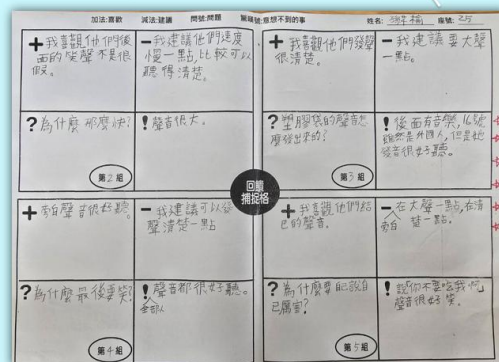 加法:喜歡 減法:建議 問號:問題 驚嘆號:意想不到的事 姓名: 座號:25
+我喜觀他們後
面的笑聲不是很
假。
-我建議他們速度
慢一點,比較可以
聽得清楚。
?為什麼那麼快?
!聲音很大。
第2組
+我喜觀他們發聲
很清楚。
-我建議要大聲
一點。
?塑膠袋的聲音怎
麼發出來的?
!後面有音樂,16號
雖然是外國人,但是她
發音很好聽。
第3組
回饋
捕捉格
+旁白聲音很好聽。
-我建議可以發
聲清楚一點
?為什麼最後要笑?
!聲音都很好聽。
全部人
第4組
+我喜觀他們
已的聲音。
-在大聲一點,在清
楚一點。
?為什麼要
已厲害?
!說你不要吃我啊
聲音很好笑。
第5組